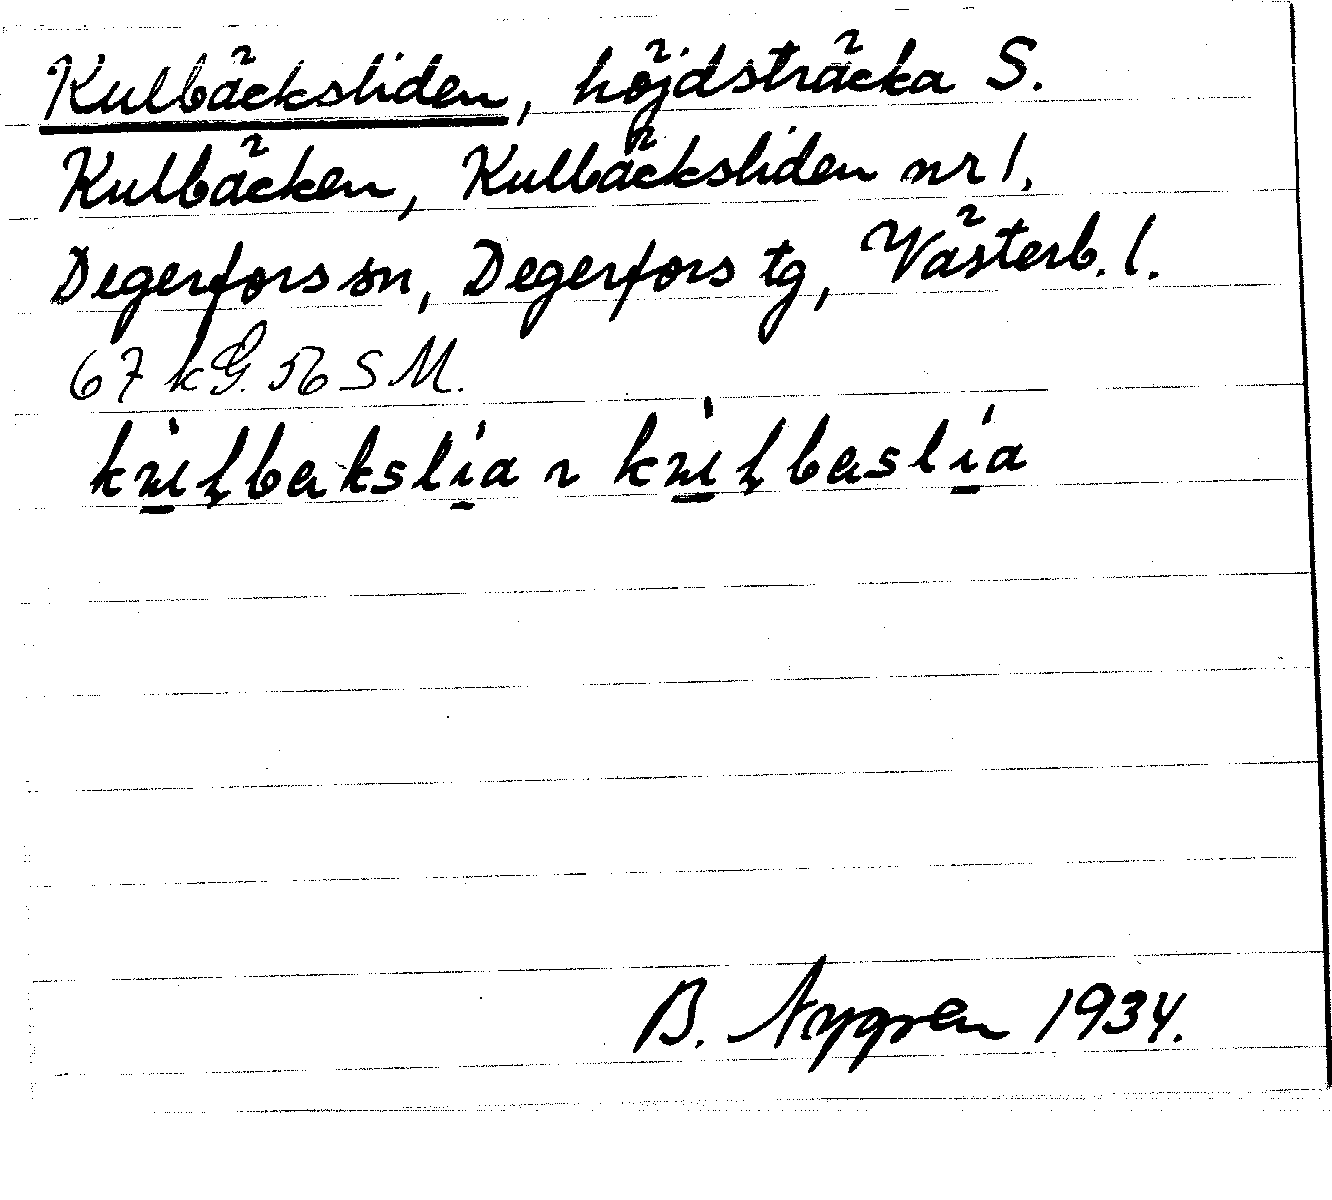 Kulbäcksliden, höjdsträcka S.
Kulbäcken, Kulbäcksliden nr 1.
Degerfors sn, Degerfors tg, Västerb. l.
67 kG. 56 SM.
B. Nygren 1934.